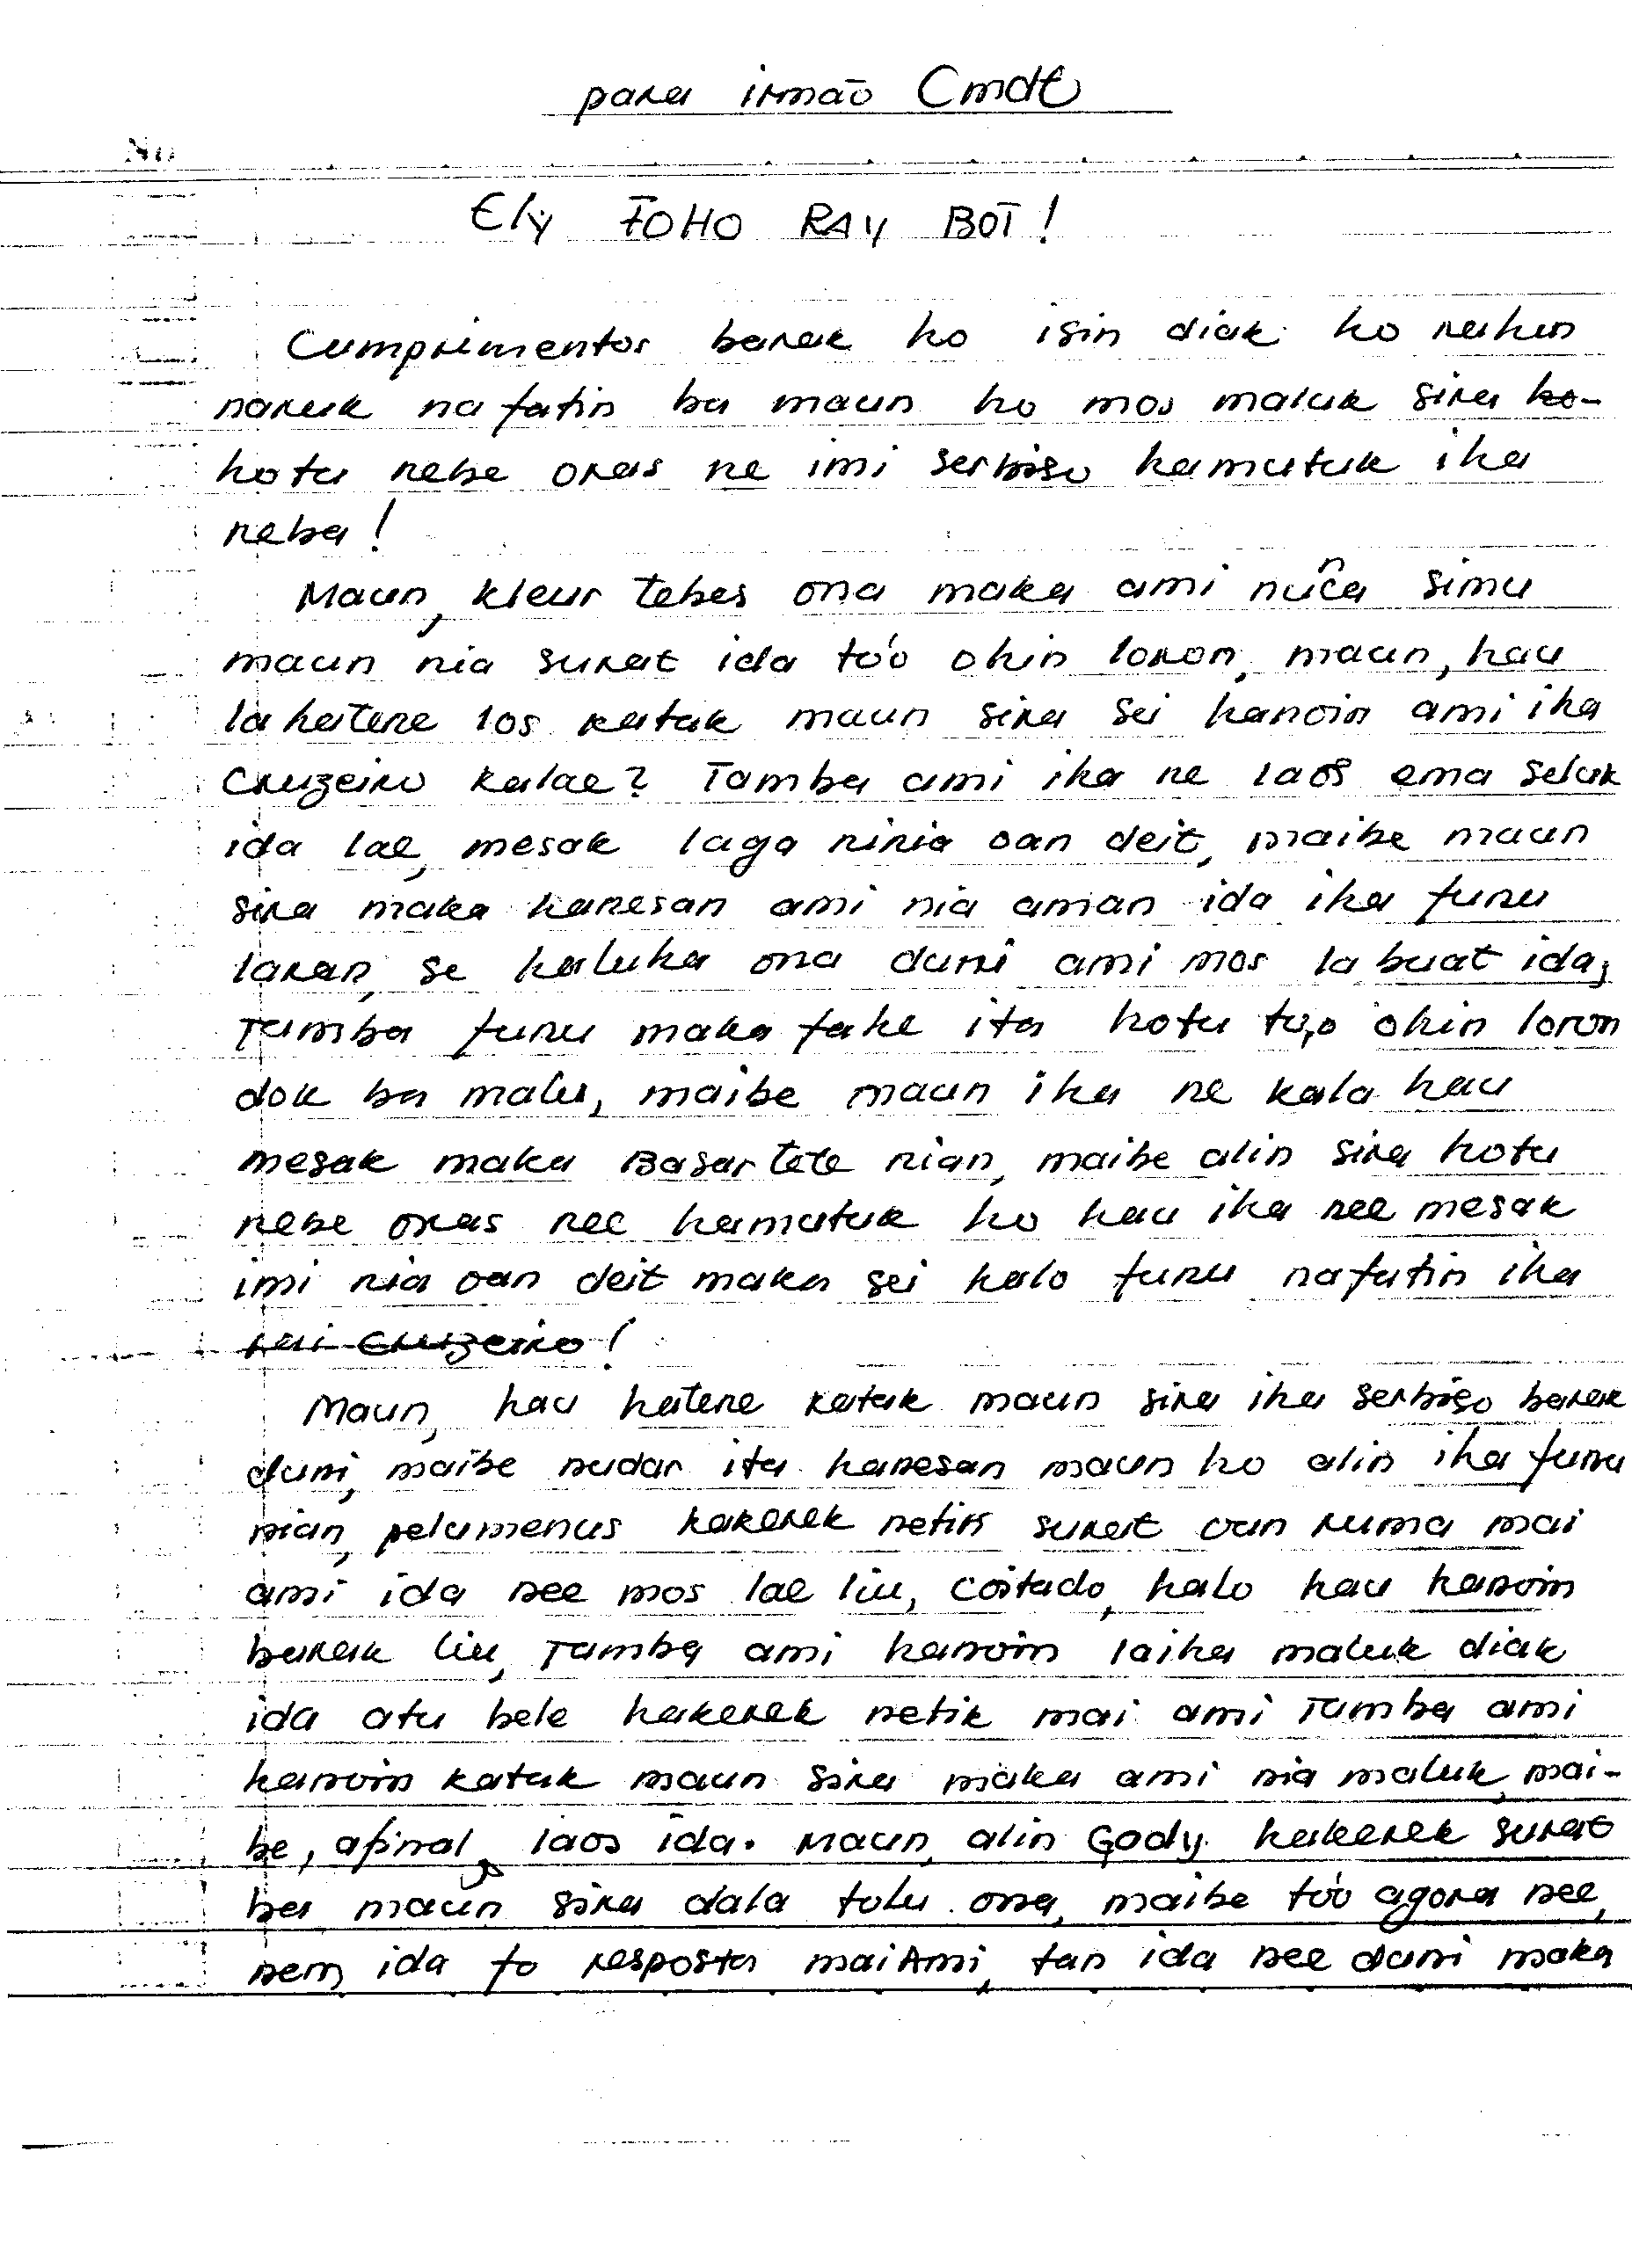 para irmão Cmdt
No
Ely FOHO RAY BOT!
Cumprimentos barak ho isin diak ho rahun
naruk nafatin ba maun ho mos maluk sira ho-
hotu nebe oras ne imi serbiso hamutuk iha
neba!
Maun, kleur tebes ona maka ami nuñca simu
maun nia surat ida tóo ohin loron, maun, hau
la hatene los katak maun sira sei hanoin ami iha
Cruzeiro kalae? Tamba ami iha ne laos ema seluk
ida lae, mesak laga ninia oan deit, maibe maun
sira maka hanesan ami nia aman ida iha funu
laran, se haluha ona duni ami mos la buat ida,
Tamba funu maka fahe ita hotu to,o ohin loron
dok ba malu, maibe maun iha ne kala hau
mesak maka Basartete nian, maibe alin sira hotu
nebe oras nee hamutuk ho hau iha nee mesak
imi nia oan deit maka sei halo funu nafatin iha
rai Cruzeiro!
Maun, hau hatene katak maun sira iha serbiso barak
duni, maibe nudar ita hanesan maun ho alin iha funu
nian, pelumenus hakerek netik surat oan ruma mai
ami ida nee mos lae liu, coitado, halo hau hanoin
barak liu, Tamba ami hanoin laiha maluk diak
ida atu bele hakerek netik mai ami Tamba ami
hanoin katak maun sira maka ami nia maluk, mai-
be, afinal, laos ida. Maun, alin Gody hakerek surat
ba maun sira dala tolu ona, maibe tóo agora nee,
nem ida fo resposta mai Ami, tan ida nee duni maka